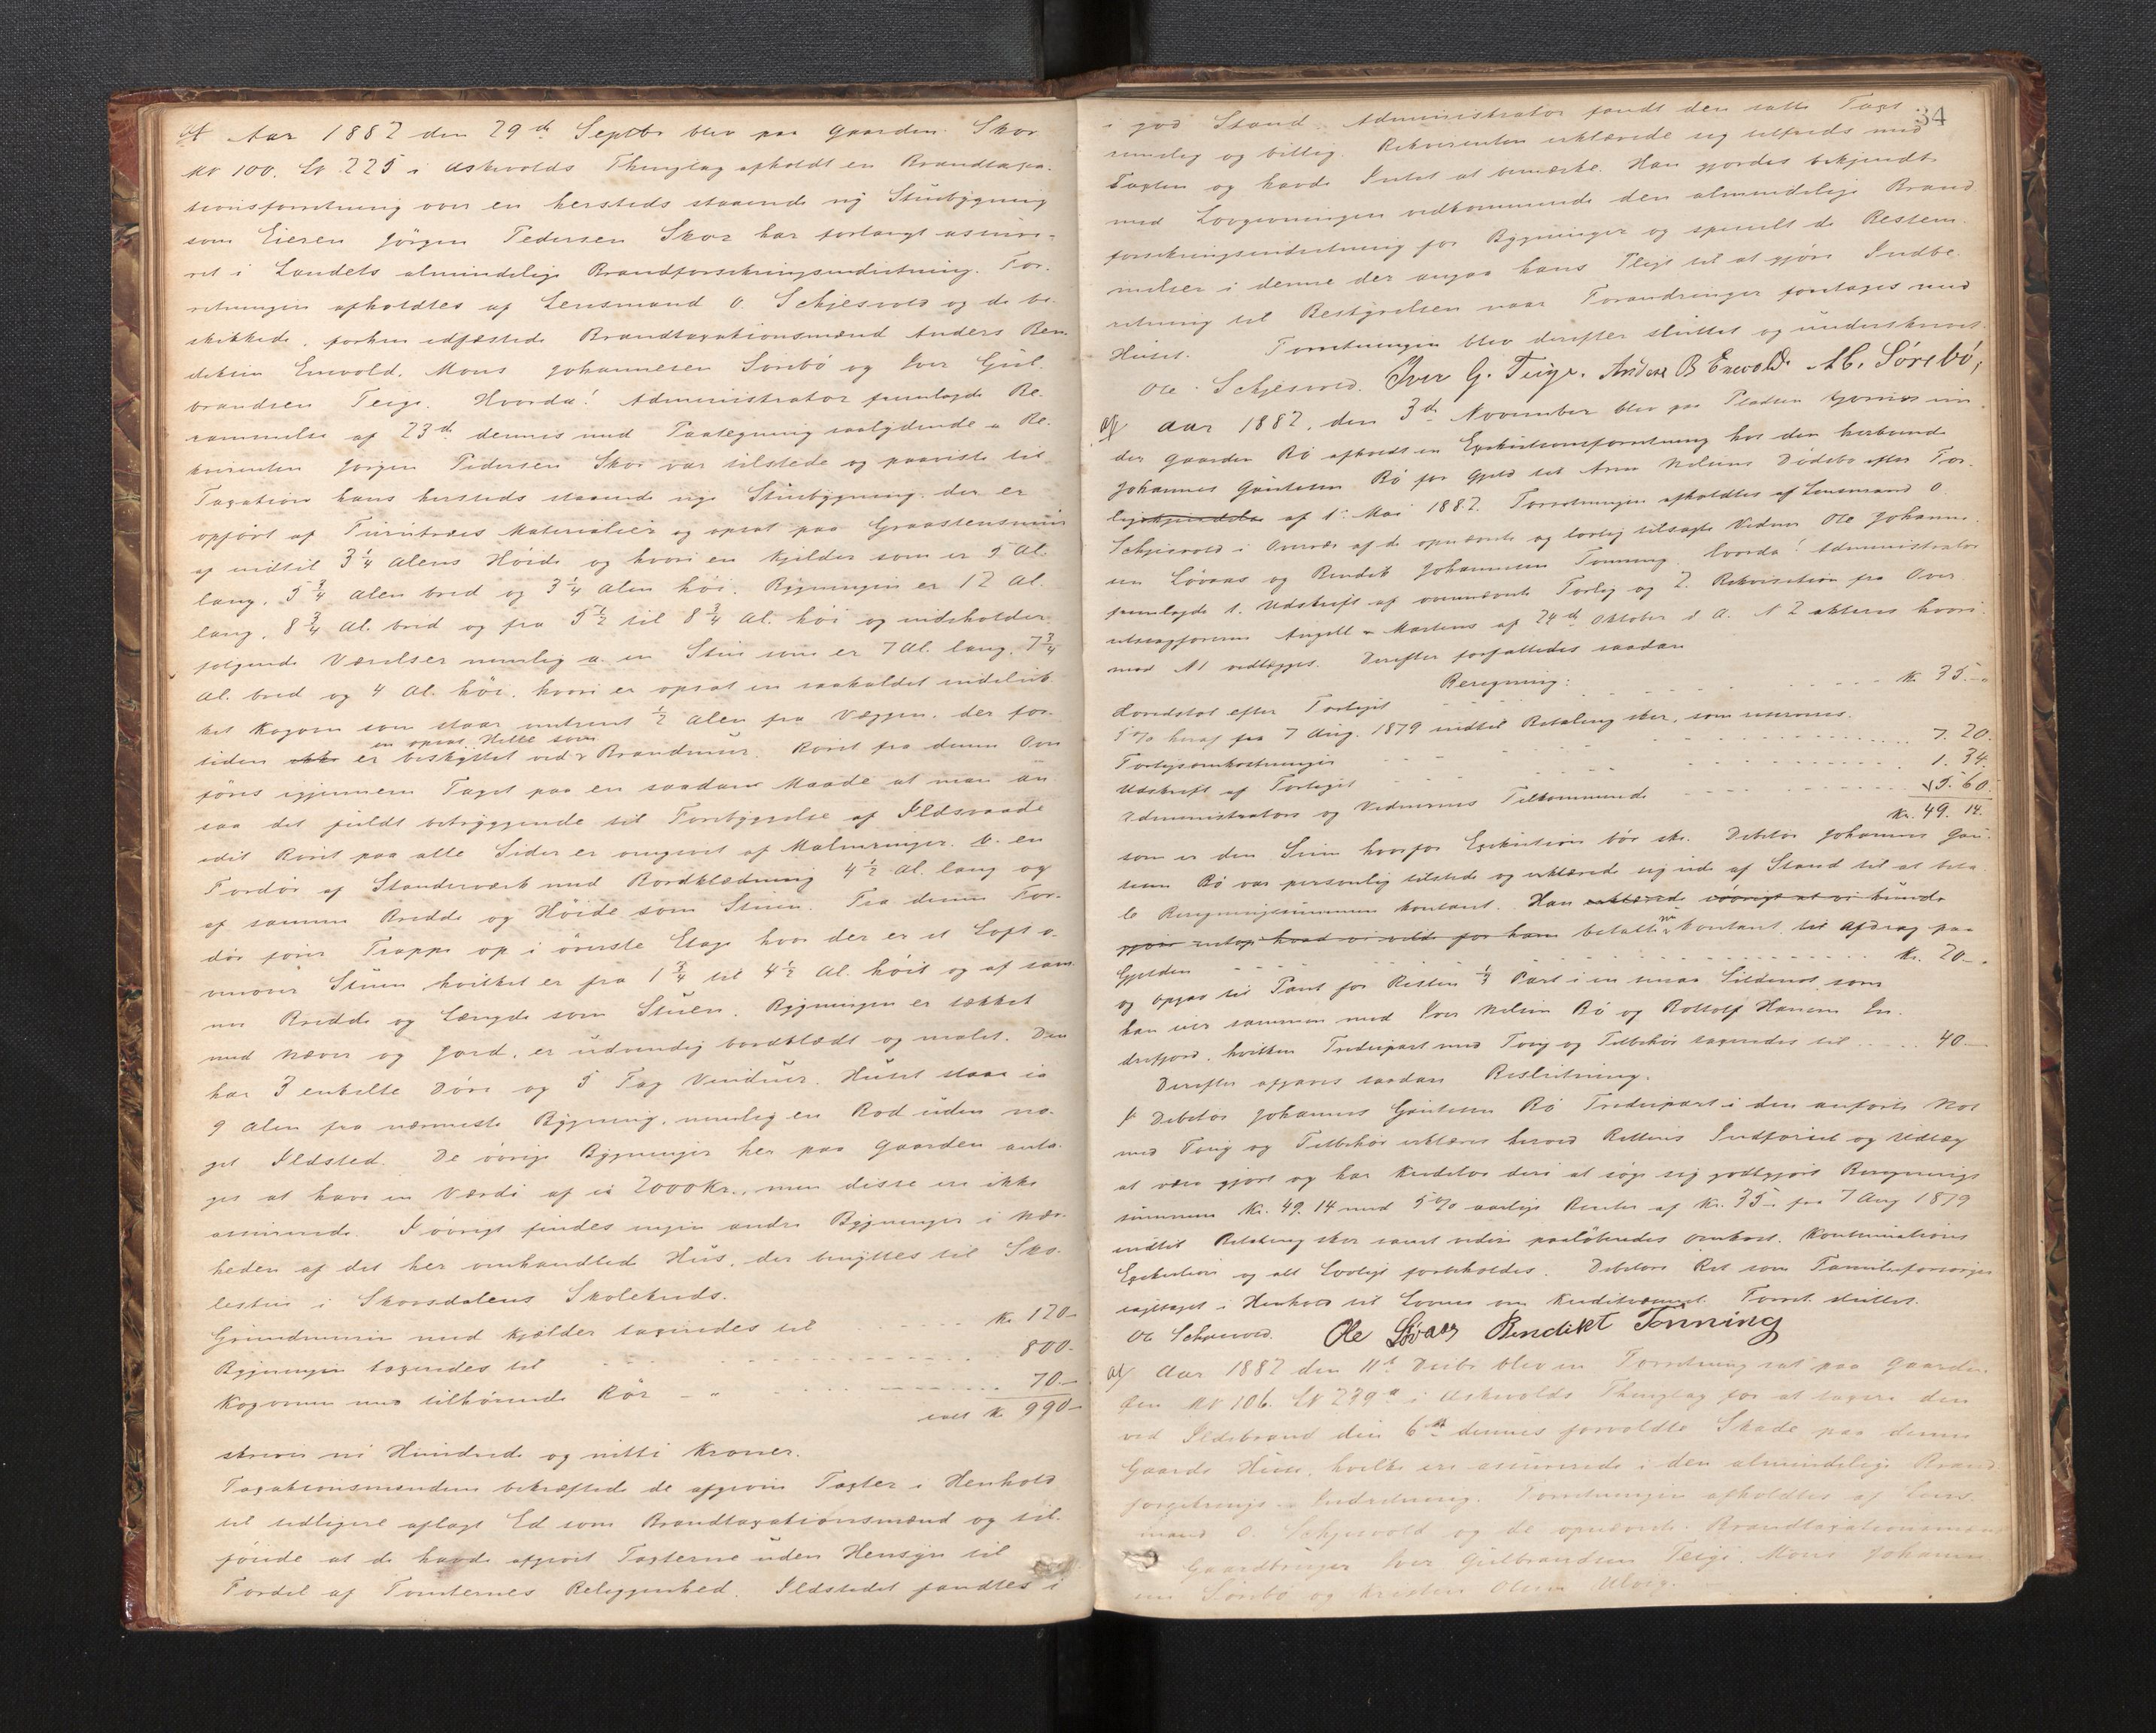 Aar 1882 den 29de Septbr blev paa Gaarden Skor
MN 100. LN 225 i Askevolds Thinglag afholdt en Brandtaxa-
tionsforretning over en hersteds staaende ny Stuebygning
som Eieren Jörgen Pedersen Skor har forlangt assure-
ret i Landets almindelige Brandforsikringsindretning. For-
retningen afholdtes af Lensmand O. Schjesvold og de be-
skikkede, forhen edfæstede Brandtaxationsmænd Anders Ben-
diktsen Enevold, Mons Johannesen Sörebö og Iver Gul-
brandsen Teige. Hvorda! Administrator fremlagde Be-
rammelse af 23de dennes med Paategning saalydende – Re-
kvirenten Jörgen Pedersen Skor var tilstede og paaviste til
Taxation hans hersteds staaende nye Stuebygning der er
opfört af Furutræes Materialier og opsat paa Graastensmuur
af indtil 3 1/4 Alens Höide og hvori en Kjelder som er 5 Al.
lang, 5 3/4 Alen bred og 3 1/4 Alen höi. Bygningen er 12 Al.
lang, 8 3/4 Al. bred og fra 5 1/2 til 8 3/4 Al. höi og indeholder
fölgende Værelser nemlig a. en Stue som er 7 Al. lang, 7 3/4
Al. bred og 4 Al. höi, hvori er opsat en saakaldet indeluk-
ket Kogovn som staar omtrent 1/2 Alen fra Væggen, der for-
en opsat Helle som
tiden er beskyttet ved Brandmuur. Röret fra denne Ovn
föres igjennem Taget paa en saadan Maade at man an-
saa det fuldt betryggende til Forebyggelse af Ildsvaade
idet Röret paa alle Sider er omgivet af Malmringer. b. en
Fordör af Standerværk med Bordklædning 4 1/2 Al. lang og
af samme Bredde og Höide som Stuen. Fra denne For-
dör förer Trappe op i överste Etage hvor der er et Loft o-
venover Stuen, hvilket er fra 1 3/4 til 4 1/2 Al. höit og af sam-
me Bredde og Længde som Stuen. Bygningen er tækket
med Næver og Jord, er udvendig bordklædt og malet. Den
har 3 enkelte Döre og 5 Fag Vinduer. Huset staar ca
9 Alen fra nærmeste Bygning, nemlig en Bod uden no-
get Ildsted. De övrige Bygninger her paa Gaarden anta-
ges at have en Værdi af ca 2000 Kr., men disse ere ikke
assurerede. I övrigt findes ingen andre Bygninger i Nær-
heden af det her omhandlede Hus, der benyttes til Sko-
lestue i Skorsdalens Skolekreds.
Grundmuren med Kjælder taxeredes til Kr. 120-
Bygningen taxeredes til 800-
Kogovnen med tilhörende Rör – " 70-
ialt Kr. 990-
skriver ni Hundrede og nitti Kroner.
Taxationsmændene bekræftede de afgivne Taxter i Henhold
til tidligere aflagt Ed som Brandtaxationsmænd og til-
föiede at de havde afgivet Taxterne uden Hensyn til
Fordel af Tomternes Beliggenhed. Ildstedet fandtes i
34
i god Stand. Administrator fandt den satte Taxt
rimelig og billig. Rekvirenten erklærede sig tilfreds med
Taxten og havde Intet at bemærke. Han gjordes bekjendt
med Lovgivningen vedkommende den almindelige Brand-
forsikringsindretning for Bygninger og specielt de Bestem-
melser i denne der angaa hans Pligt til at gjöre Indbe-
retning til Bestyrelsen naar Forandringer foretages med
Huset. Forretningen blev derefter sluttet og underskrevet.
Ole Schjesvold. Iver G. Teige. Anders B Enevold. M. Sörebö,
Aar 1882, den 3de November blev paa Pladsen un-
der Gaarden Bö afholdt en Exekutionsforretning hos den herboende
Johannes Gautesen Bö for Gjeld til Arne Nilsens Dödsbo efter For-
lig af 1. Mai 1882. Forretningen afholdtes af Lensmand O.
Schjesvold i Overvær af de opnævnte og lovlig tilsagte Vidner Ole Johanne-
sen Lövaas og Bendik Johannesen Tonning. hvorda! Administrator
fremlagde 1. Udskrift af ovennævnte Forlig og 2. Rekvisition fra Over-
retssagförerne Angell & Martens af 24de Oktober d. A. N 2 akteres hvori-
mod N 1 vedlægges. Derefter forfattedes saadan
Beregning:
Hovedstol efter Forliget Kr. 35.-
5% heraf fra 7 Aug. 1879 indtil Betaling sker, som reserveres.
Forligsomkostninger 7. 20.
Udskrift af Forliget 1. 34.
Administrators og Vidnernes Tilkommende 5. 60
Kr. 49. 14.
som er den Sum hvorfor Exekution bör ske. Debitor Johannes Gau-
tesen Bö var personlig tilstede og erklærede sig ude af Stand til at beta-
le Beregningssummen kontant. Han erklærede iövrigt at vi kunde
gjöre Udlæg hvad vi vilde for ham betalte nu kontant til Afdrag paa
Gjælden Kr. 20-.
og opgav til Pant for Resten 1/3 Part i en smaa Sildenot som
han eier sammen med Iver Nilsen Bö og Botholf Hansen In-
drefjord, hvilken Trediepart med Toug og Tilbehör taxeredes til 40-
Derefter afgaves saadan Beslutning.
I Debitor Johannes Gautesen Bö Trediepart i den anförte Not
med Toug og Tilbehör erklæres herved Rettens Indförsel og Udlæg
at være gjort og har Kreditor deri at söge sig godtgjort Beregnings-
summen Kr. 49. 14 med 5% aarlige Renter af Kr. 35- fra 7 Aug 1879
indtil Betaling sker samt videre paalöbendes Omkost. Kontinuations
Exekution og alt Lovligt forbeholdes. Debitors Ret som Familieforsörger
iagttaget i Henhold til Loven om Kreditvæsenet. Forret. sluttet.
Ole Schjesvold. Ole Lövaas Bendikt Tonning
Aar 1882 den 11te Decbr blev en Forretning sat paa Gaarden
Öen MN 106. LN 239a i Askevolds Thinglag for at taxere den
ved Ildebrand den 6te dennes forvoldte Skade paa denne
Gaards Huse, hvilke ere assurerede i den almindelige Brand-
forsikrings-Indretning. Forretningen afholdtes af Lens-
mand O. Schjesvold og de opnævnte Brandtaxationsmænd
Gaardbruger Iver Gulbrandsen Teige, Mons Johanne-
sen Sörebö og Kristen Olsen